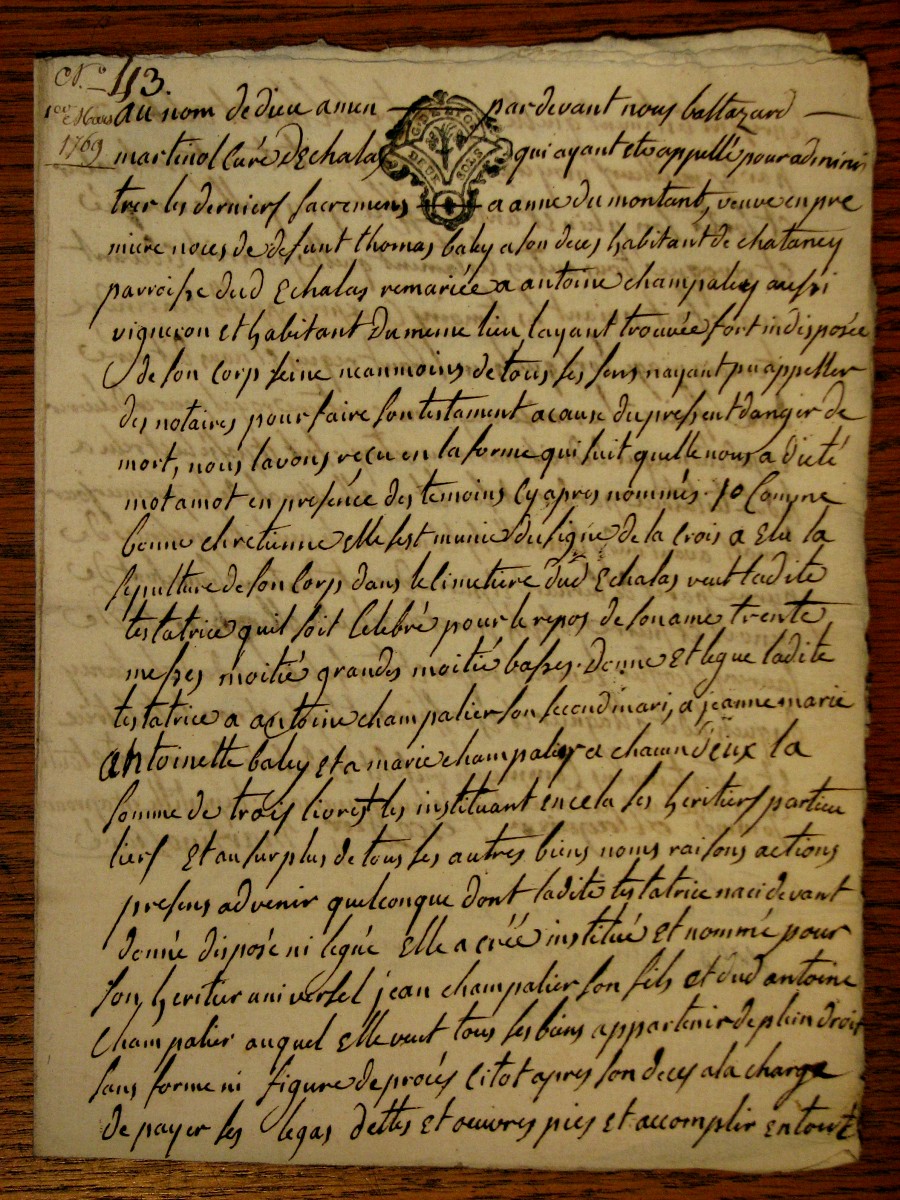 N.° 113.
1er Mars
1769
au nom de dieu amen par devant nous baltazard
martinol Curé D'Echalas qui ayant eté appellé pour adminis
trer les derniers sacremens a anne du montant, veuve en pre
miere noces de defunt thomas baley a son deces habitant de chataney
parroisse dud Echalas remariée a antoine champaley aussi
vigneron et habitant Du meme lieu layant trouvée fort indisposée
de son corp seine neanmoins de tous ses sens nayant pu appeller
des notaires pour faire son testament a cause du pressent danger de
mort, nous lavons reçu en la forme qui suit quelle nous a dicté
mot a mot en presence des temoins cy apres nommés. 1o Comme
bonne chretienne elle sest munie du signe de la crois a elu la
sepulture de son Corp dans le cimetiere dud Echalas veut ladite
testatrice quil soit celebré pour le repos de son ame trente
messes moitié grandes moitié basses. Donne et legue ladite
testatrice a antoine champalier son second mari, a jeanne marie
antoinette baley et a marie champalier a chacun d'eux la
somme de trois livres les instituant en cela ses heritiers particu
liers et au surplus de tous ses autres biens noms raisons actions
presens advenir quelconque dont ladite testatrice na ci devant
donné disposé ni legué elle a créé institué et nommé pour
son heritier universel jean champalier son fils et dud antoine
champalier auquel elle veut tous ses biens appartenir de plein droit
sans forme ni figure de procés citot apres son deces a la charge
de payer ses legas dettes et oeuvres pies et accomplir en tout